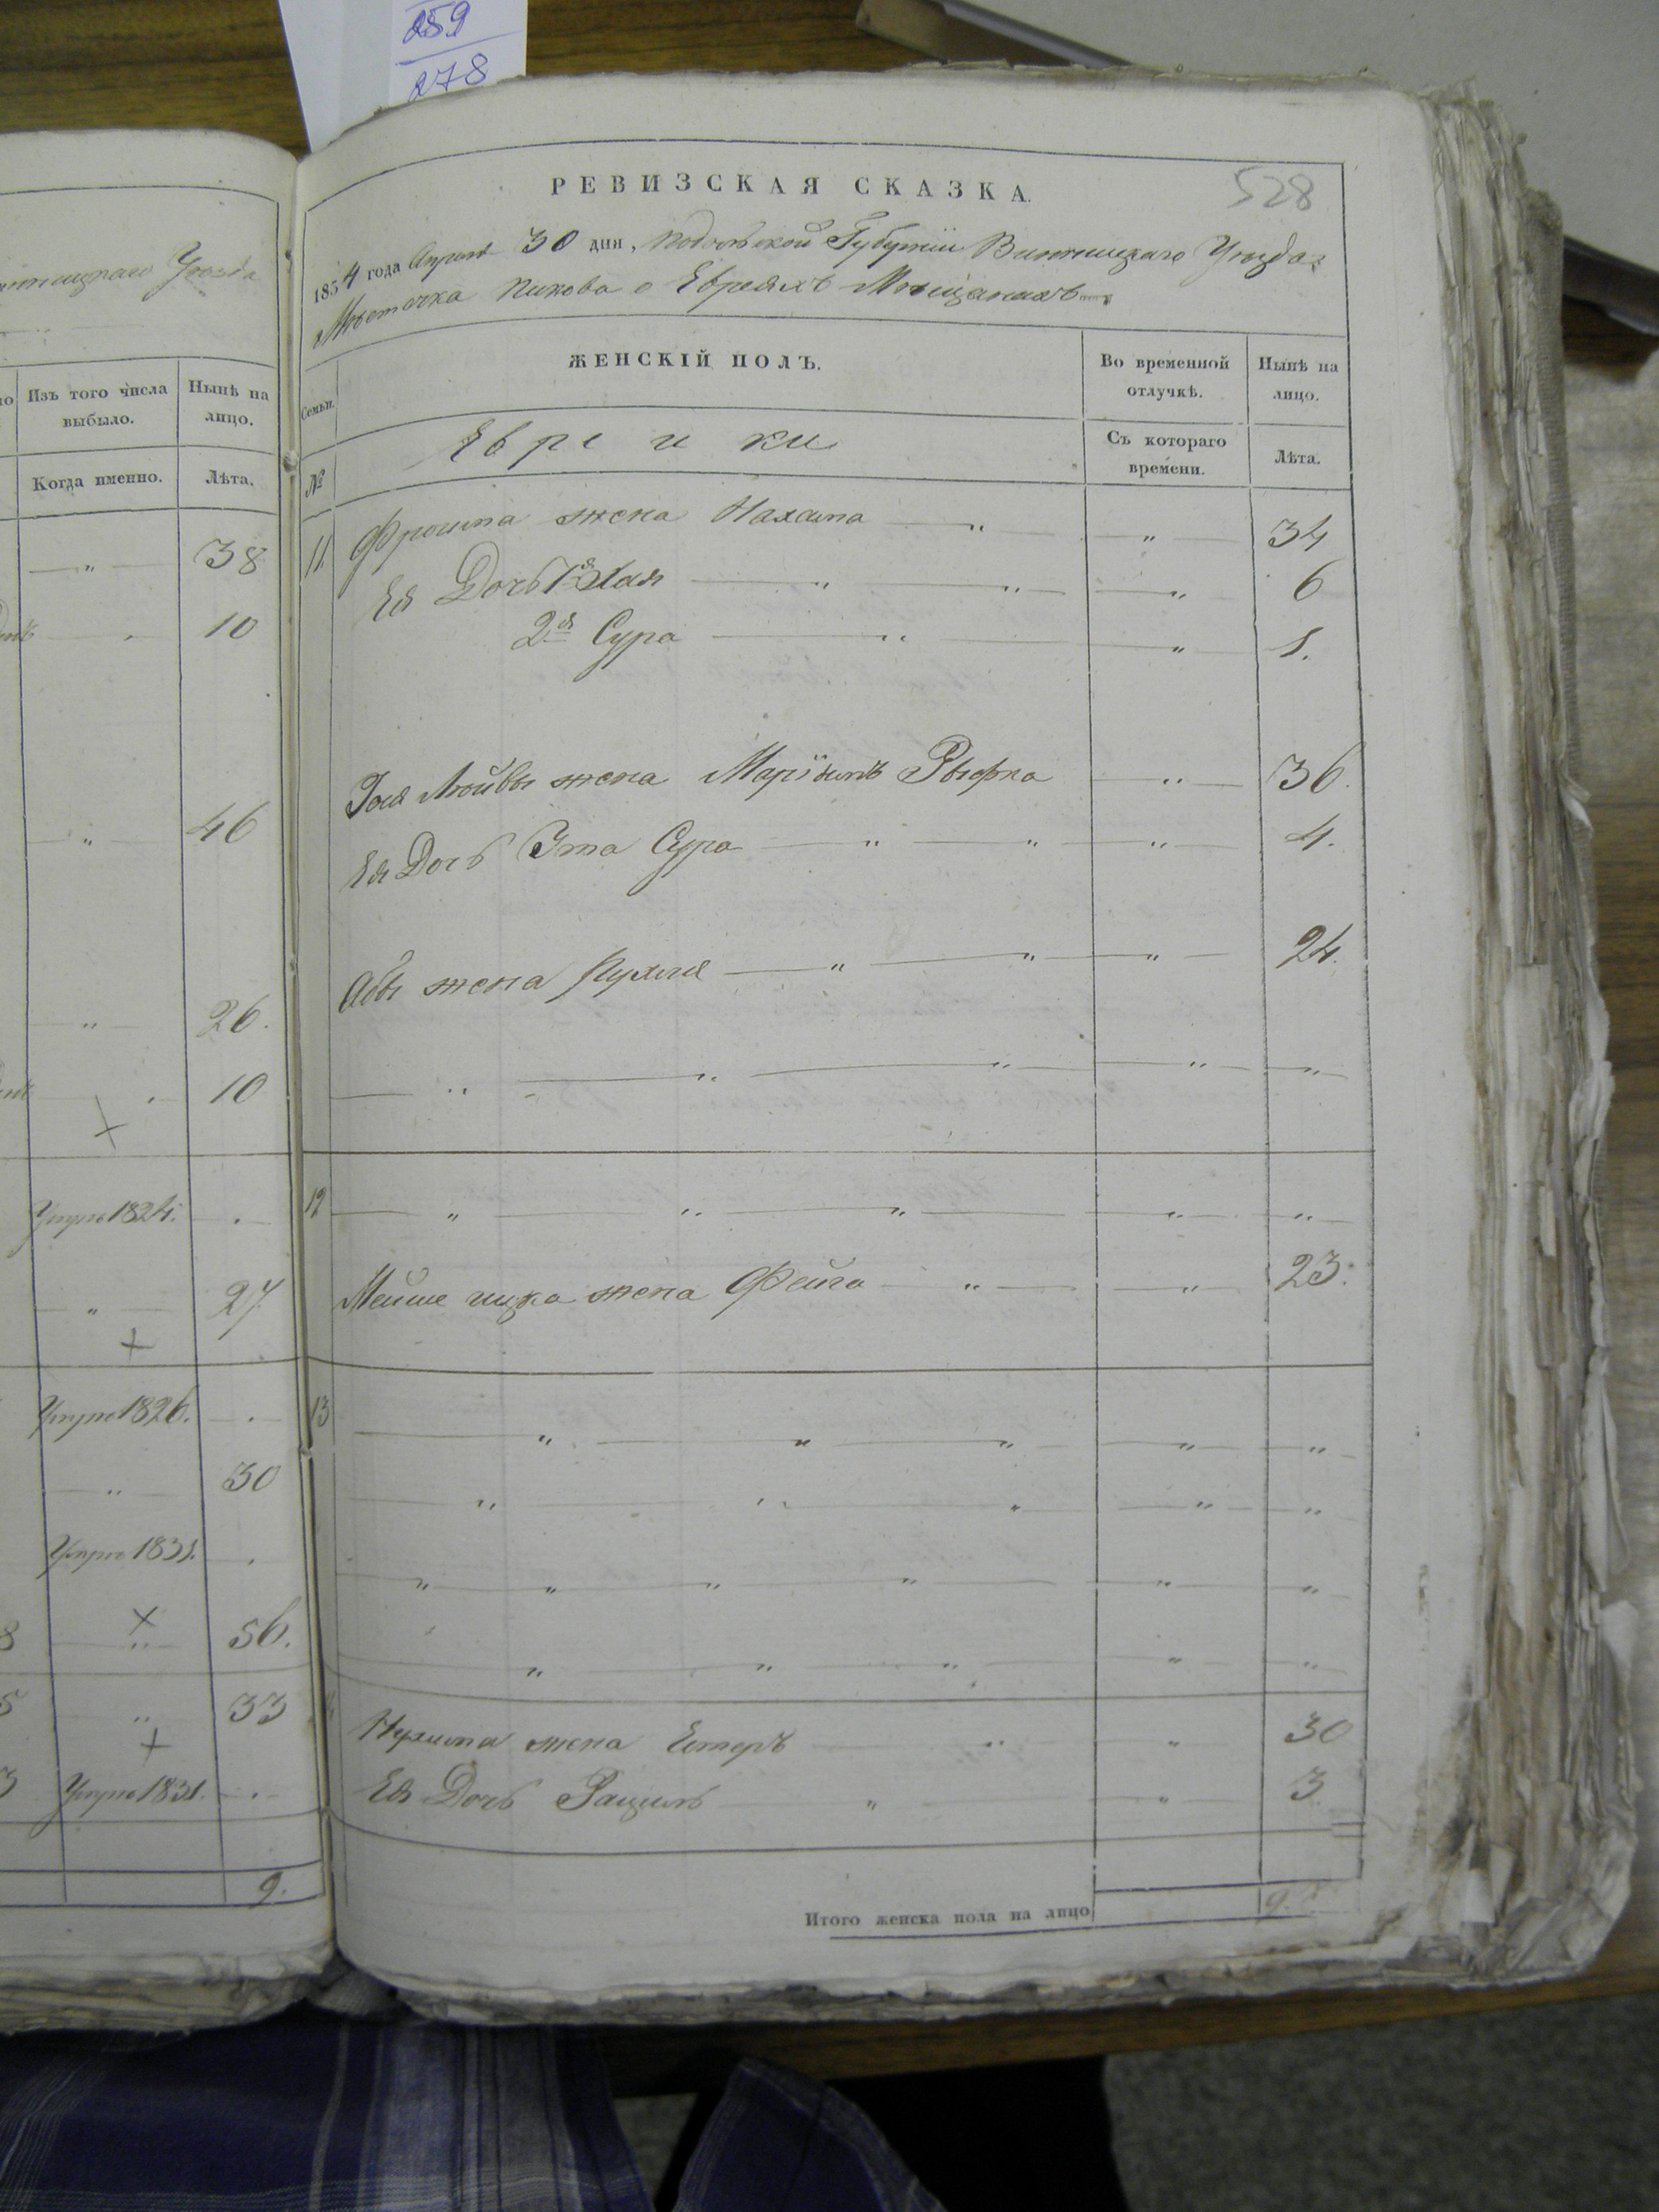 259
278
РЕВИЗСКАЯ СКАЗКА.
528
1854 года Апреля 30 дня, Подольской Губернии Винницкаго Уезда
Местечка Пикова о Евреяхъ Мещанахъ
ЖЕНСКІЙ ПОЛЪ.
Во временной отлучкѣ.
Нынѣ на лицо.
Семьи.
Еврейки
Съ котораго времени.
Лѣта.
№
11. Фроима жена Нахама " " 34
Ея Дочь 1я Хая " " " 6
2я Сура " " 1.
Лейбы жена Маріямъ Рыфка " 36.
Ея Дочь Эта Сура " " " 4.
Абы жена Рухля " " " 24.
" " " " "
12 " " " " "
Мейше ицка жена Фейга " " 23.
13 " " " " "
" " " "
" " " " " "
" " " " "
Нухима жена Естеръ " " 30
Ея Дочь Рациль " " 3
Итого женска пола на лицо 9.
Уезда
Изъ того числа выбыло.
Нынѣ на лицо.
Когда именно.
Лѣта.
" 38
10
" 46
" 26.
10
Умре 1824.
" 27.
Умре 1826.
" 30
Умре 1831.
" 56.
" 33
Умре 1831.
9.